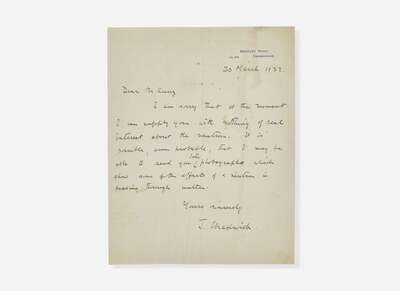 30 March 1932.
Dear Mr
I am sorry that at the moment
I can supply you with nothing of real
interest about the neutron. It is
possible, even probable, that I may be
later
able to send you photographs which
show some of the effects of a neutron in
passing through matter.
Yours sincerely
J. Chadwick.